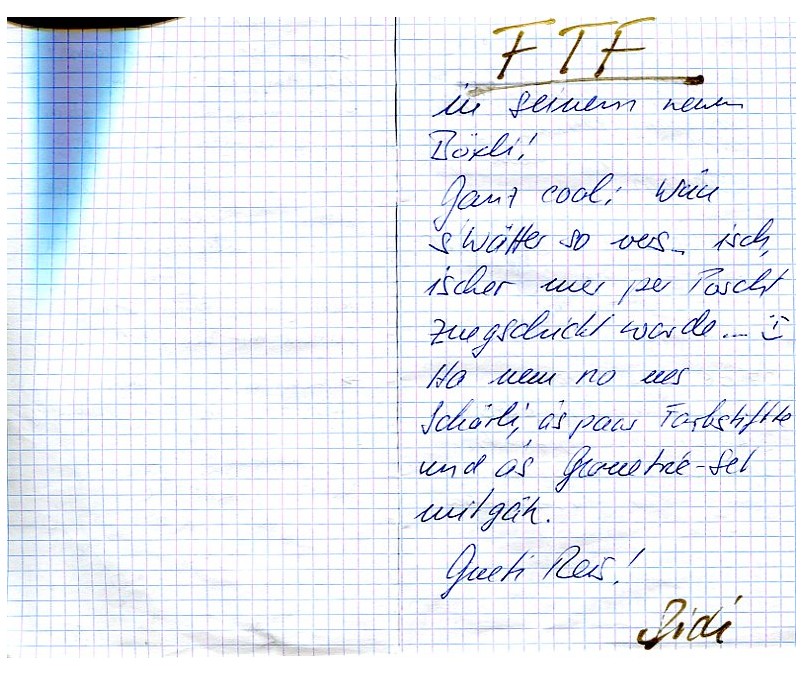 FTF
in seinem neuen
Böxli!
Ganz cool: Wäu
s'Wätter so vers... isch,
ischer mer per Poscht
zuegschickt worde...
Ha nem no nes
Schärli, äs paar Farbstiftte
und äs Geometrie-Set
mitgäh.
Gueti Reis!
Didi